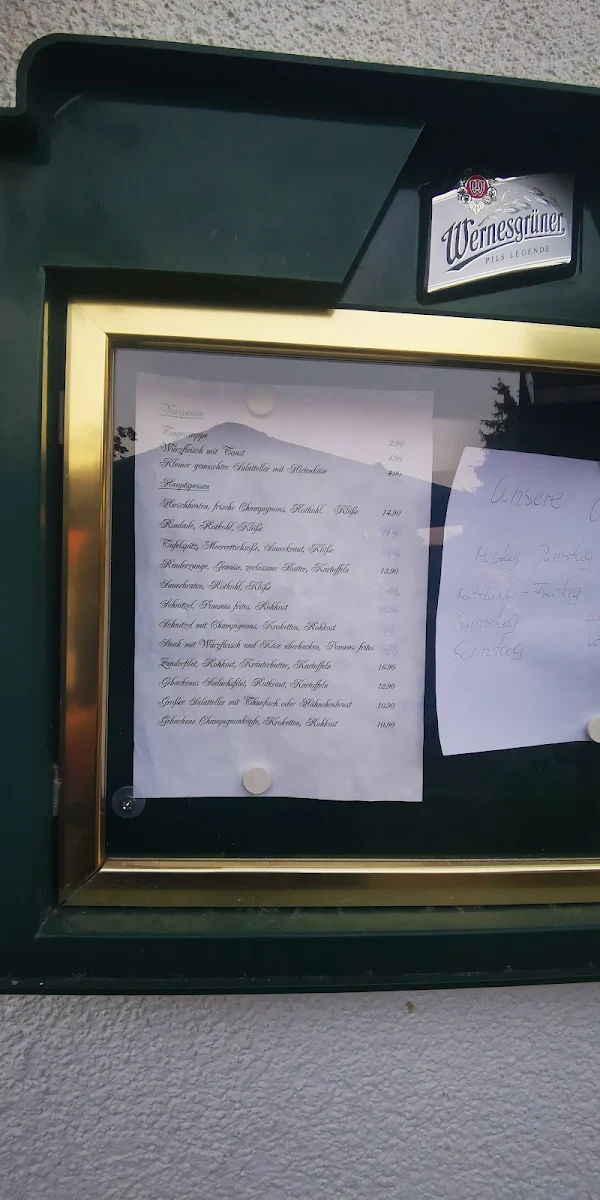 Wernesgrüner
PILS LEGENDE
Vorspeise
Tagessuppe 3.90
Würzfleisch mit Toast 4.90
Kleiner gemischter Salatteller mit Hirtenkäse 4.90
Hauptspeisen
Hirschbraten, frische Champignons, Rotkohl, Klöße 14.90
Roulade, Rotkohl, Klöße
Tafelspitz, Meerrettichsoße, Sauerkraut, Klöße
Rinderzunge, Gemüse, zerlassene Butter, Kartoffeln 13.90
Sauerbraten, Rotkohl, Klöße
Schnitzel, Pommes frites, Rohkost
Schnitzel mit Champignons, Kroketten, Rohkost
Steak mit Würzfleisch und Käse überbacken, Pommes frites
Zanderfilet, Rohkost, Kräuterbutter, Kartoffeln 16.90
Gebackenes Seelachsfilet, Rotkraut, Kartoffeln 12.90
Großer Salatteller mit Thunfisch oder Hähnchenbrust 10.90
Gebackene Champignonköpfe, Kroketten, Rohkost 10.90
Unsere
Montag - Dienstag
Freitag
Samstag
Sonntag